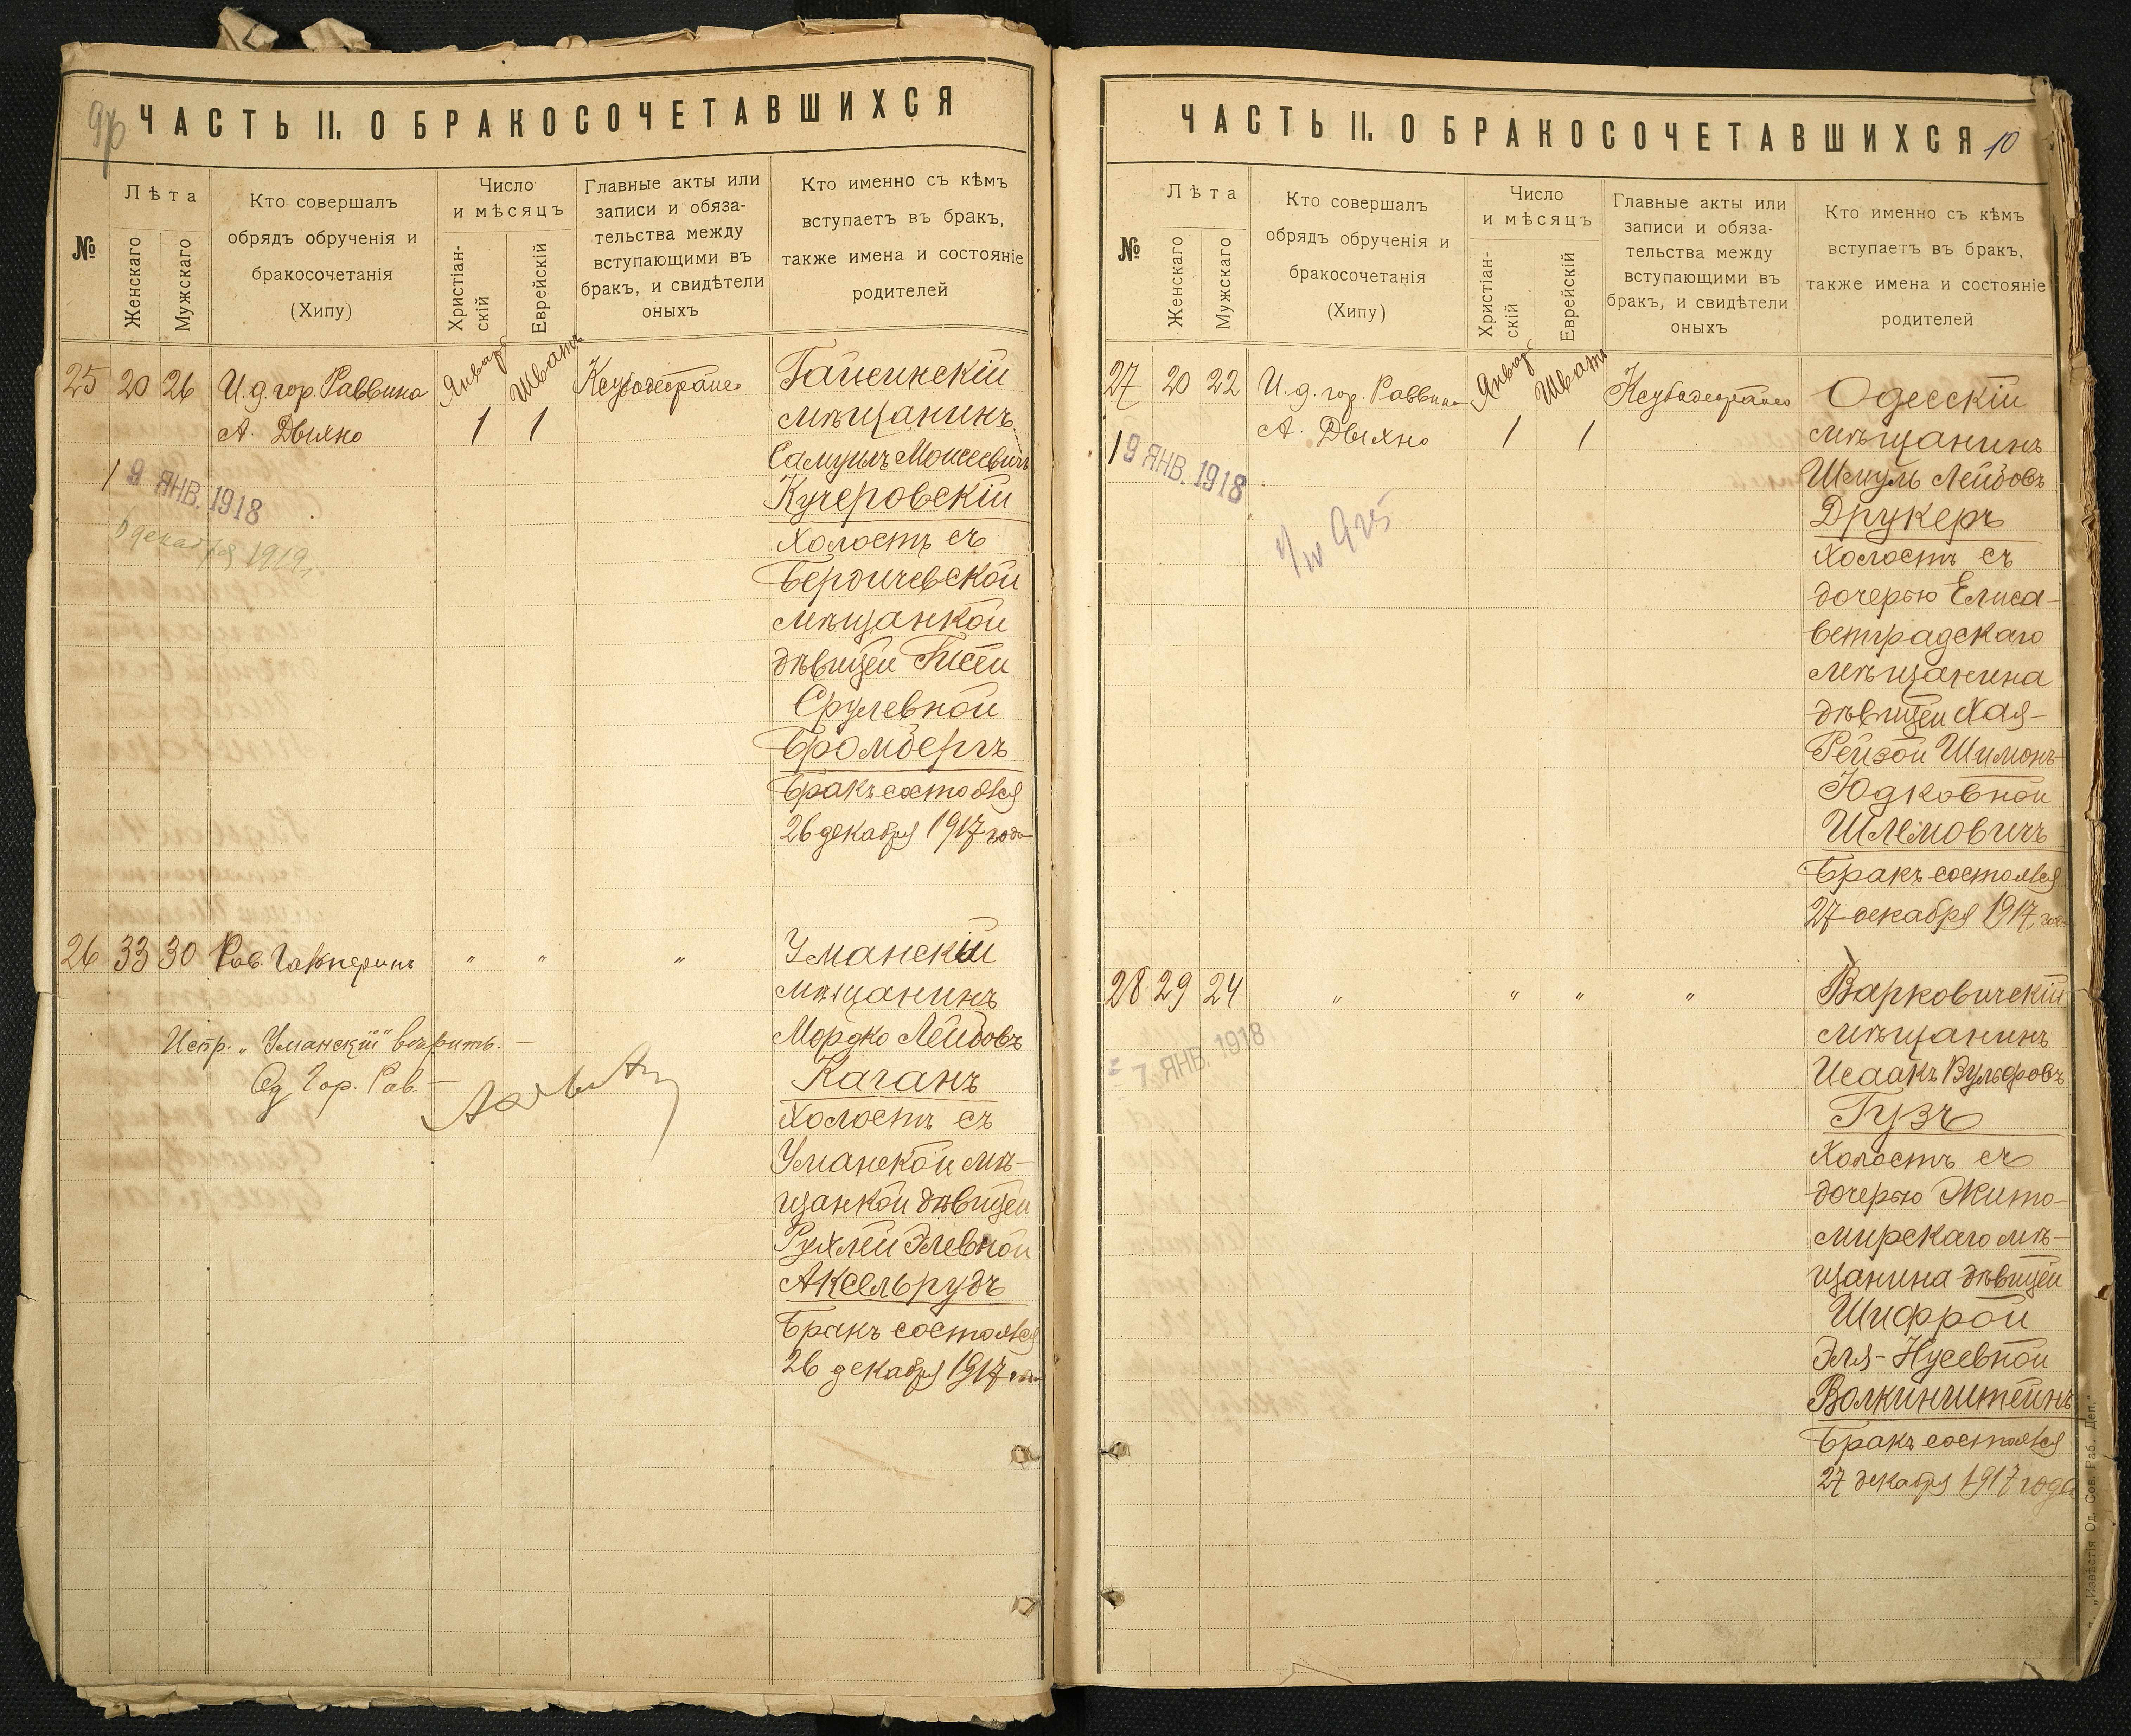 ЧАСТЬ II. О БРАКОСОЧЕТАВШИХСЯ
№
Лѣта
Женскаго
Мужскаго
Кто совершалъ
обрядъ обрученія и
бракосочетанія
(Хипу)
Число
и мѣсяцъ
Христіан-
скій
Еврейскій
Главные акты или
записи и обяза-
тельства между
вступающими въ
бракъ, и свидѣтели
оныхъ
Кто именно съ кѣмъ
вступаетъ въ бракъ,
также имена и состояніе
родителей
25 20 26 И. д. гор. Раввина Январь Шватъ
А. Дыхно 1 1
19 ЯНВ. 1918
декабря
Гайсинскій
мѣщанинъ
Самуилъ Моисеевичъ
Кучеровскій
холостъ съ
Бердичевской
мѣщанкой
дѣвицей
Срулевной
Бромбергъ
Бракъ состоялся
26 декабря 1917 года
26 33 30 Рав. Гальперинъ " " "
Уманскій
мѣщанинъ
Мордко Лейбовъ
Каганъ
холостъ съ
Уманской мѣ-
щанкой дѣвицей
Рухлей Элевной
Аксельрудъ
Бракъ состоялся
26 декабря 1917 года
Испр. „Уманскій" вѣрить. —
Од. Гор. Рав. —
ЧАСТЬ II. О БРАКОСОЧЕТАВШИХСЯ 10
№
Лѣта
Женскаго
Мужскаго
Кто совершалъ
обрядъ обрученія и
бракосочетанія
(Хипу)
Число
и мѣсяцъ
Христіан-
скій
Еврейскій
Главные акты или
записи и обяза-
тельства между
вступающими въ
бракъ, и свидѣтели
оныхъ
Кто именно съ кѣмъ
вступаетъ въ бракъ,
также имена и состояніе
родителей
27 20 22 И. д. гор. Раввина Январь Шватъ
А. Дыхно 1 1
19 ЯНВ. 1918
925
Одесскій
мѣщанинъ
Шмуль Лейбовъ
Друкеръ
холостъ съ
дочерью Елиса-
ветградскаго
мѣщанина
дѣвицей Хая-
Рейзой Шимонъ-
Юдковной
Шлемовичъ
Бракъ состоялся
27 декабря 1917 года
28 29 24 " " " "
7 ЯНВ. 1918
Варковичскій
мѣщанинъ
Исаакъ Вульфовъ
Гузъ
холостъ съ
дочерью Жито-
мирскаго мѣ-
щанина дѣвицей
Шифрой
Эля-Нусевной
Волкинштейнъ
Бракъ состоялся
27 декабря 1917 года
„Извѣстія Од. Сов. Раб. Деп."